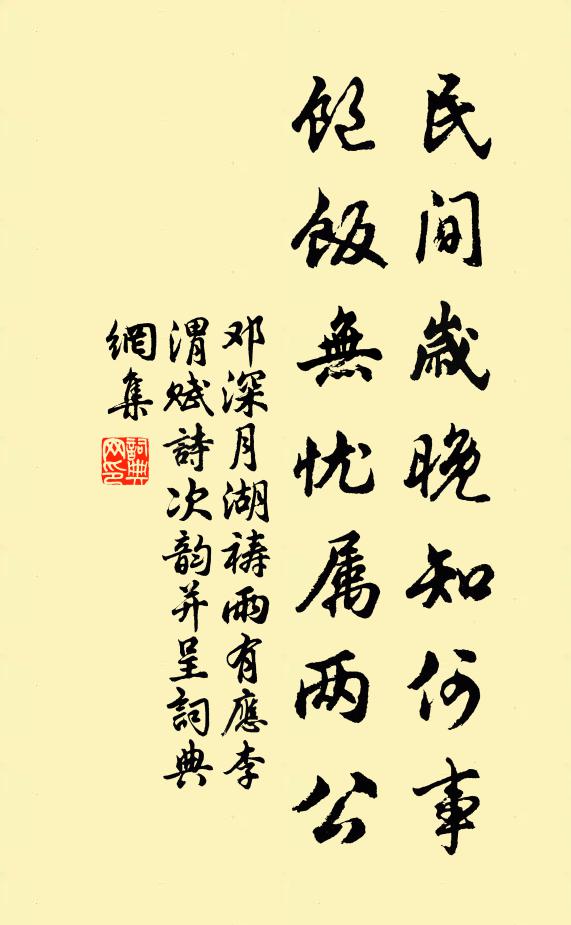 民间歳晚知何事
饱饭無忧属两公
邓深月湖祷雨有應李
渭赋詩次韵并呈詞典
網集
詞典
网印